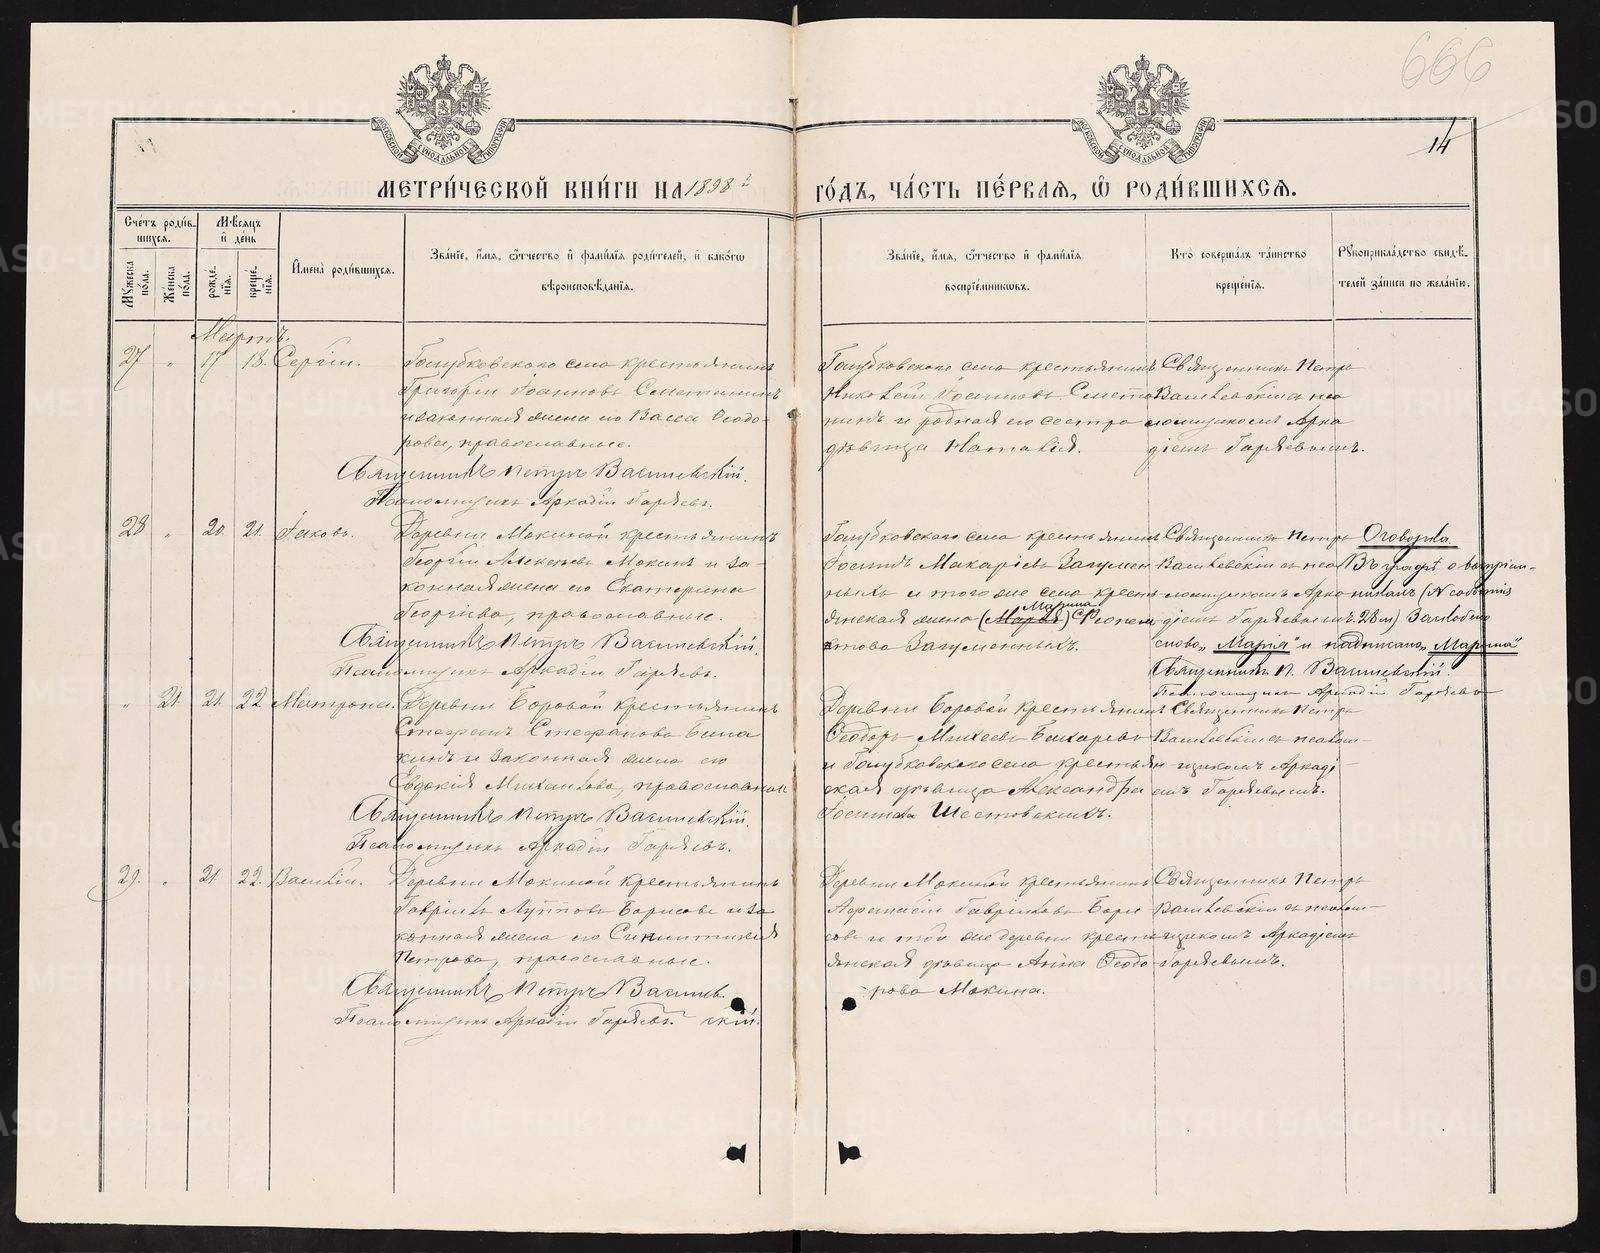 666
14
МОСКОВСКОЙ СѴНОДАЛЬНОЙ ТИПОГРАФІИ
МОСКОВСКОЙ СѴНОДАЛЬНОЙ ТИПОГРАФІИ
МЕТРИ́ЧЕСКОЙ КНИ́ГИ НА 1898й
ГО́ДЪ, ЧА́СТЬ ПЕ́РВАѦ, Ѽ РОДИ́ВШИХСѦ.
Сче́тъ роди́вшихсѧ.
Мꙋжеска по́ла.
Же́нска по́ла.
Мѣ́сѧцъ и҆ де́нь
рожде́нїѧ.
креще́нїѧ.
И҆мена̀ роди́вшихсѧ.
Зва́нїе, и҆́мѧ, ѻ҆́тчество и҆ фами́лїѧ роди́телей, и҆ како́гѡ
вѣроисповѣ́данїѧ.
Зва́нїе, и҆́мѧ, ѻ҆́тчество и҆ фами́лїѧ
воспрїе́мникѡвъ.
Кто̀ соверша́лъ та́инство
креще́нїѧ.
Рꙋкоприкла́дство свидѣ́-
телей за́писи по жела́нїю.
Мартъ.
27 „ 17 18 Сергiй.
Голубковскаго села крестьянинъ
Григорiй Iоанновъ Сметанинъ
и законная жена его Васса Ѳеодо-
рова, православные.
Священникъ Петръ Василевскiй.
Псаломщикъ Аркадiй Гаряевъ.
Голубковскаго села крестьянинъ
Николай Iоанновъ Смета
нинъ и родная его сестра
дѣвица Наталiя.
Священникъ Петръ
Василевскiй съ пса
ломщикомъ Арка
дiемъ Гаряевымъ.
28 „ 20. 21. Iаковъ.
Деревни Мокиной крестьянинъ
Георгiй Алексѣевъ Мокинъ и за-
конная жена его Екатерина
Георгiева, православные.
Священникъ Петръ Василевскiй.
Псаломщикъ Аркадiй Гаряевъ.
Голубковскаго села крестьянинъ
Iосифъ Макарiевъ Загумен
ныхъ и того же села кресть
янская жена (Марiя) Марина
Загуменныхъ.
Священникъ Петръ
Василевскiй съ пса
ломщикомъ Арка
дiемъ Гаряевымъ.
Оговорка.
Въ графѣ о воспрiем-
28 м)
слово „Марiя" и надписано „Марина"
Священникъ П. Василевскiй.
Псаломщикъ Аркадiй Гаряевъ
„ 21. 21. 22 Матрона.
Деревни Боровой крестьянинъ
Стефанъ Стефановъ
кинъ и законная жена его
Евдокiя Михаилова, православные
Священникъ Петръ Василевскiй.
Псаломщикъ Аркадiй Гаряевъ.
Деревни Боровой крестьянинъ
Ѳеодоръ Михеевъ Бахаревъ
и Голубковскаго села крестьян
ская дѣвица Александра
Шестовскихъ.
Священникъ Петръ
Василевскiй съ псалом-
щикомъ Аркадi-
емъ Гаряевымъ.
29. „ 21. 22. Василiй.
Деревни Мокиной крестьянинъ
Гаврiилъ Борисовъ и за
конная жена его Синклитикiя
Петрова, православные.
Священникъ Петръ Василев
скiй.
Псаломщикъ Аркадiй Гаряевъ.
Деревни Мокиной крестьянинъ
Афанасiй Гаврiиловъ Бори
совъ и той же деревни кресть
янская дѣвица Анна Ѳеодо
рова Мокина.
Священникъ Петръ
Василевскiй съ псалом-
щикомъ Аркадiемъ
Гаряевымъ.
METRIKI.GASO-URAL.RU